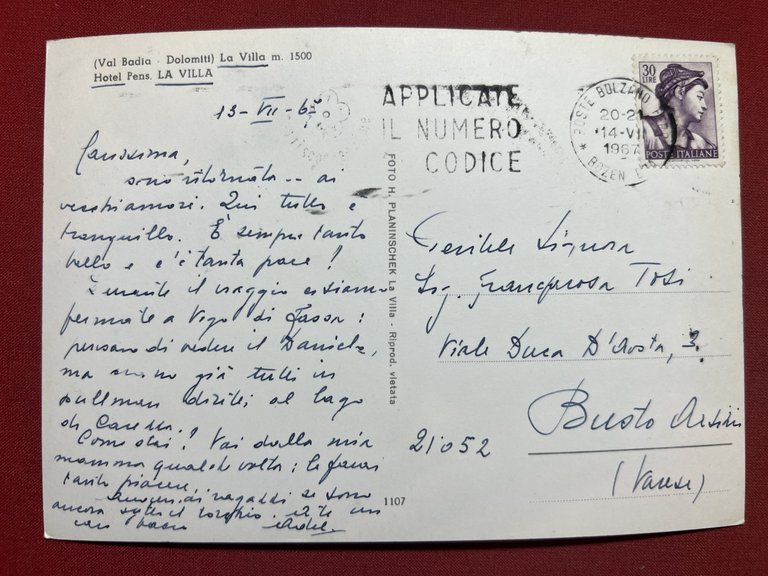 (Val Badia - Dolomiti) La Villa m. 1500
Hotel Pens. LA VILLA
13-VII-67
Carissima,
sono ritornata -- ai
vecchi amori. Qui tutto è
tranquillo. È sempre tanto
bello e c'è tanta pace!
Durante il viaggio ci siamo
fermate a Vigo di Fassa:
pensavo di vedere il Daniele,
ma erano già tutti in
pullman diretti al lago
di Carezza.
Come stai? Vai dalla mia
mamma qualche volta: le farai
tanto piacere.
ai ragazzi se sono
ancora sotto il e te un
caro bacio
FOTO H. PLANINSCHEK La Villa - Riprod. vietata
1107
APPLICATE
IL NUMERO
CODICE
POSTE BOLZANO
20-21
14-VII
1967
BOZEN
30
LIRE
POSTE ITALIANE
Gentile Signora
Sig. Giancarosa Tosi
Viale Duca D'Aosta, 3
21052
Busto Arsizio
(Varese)